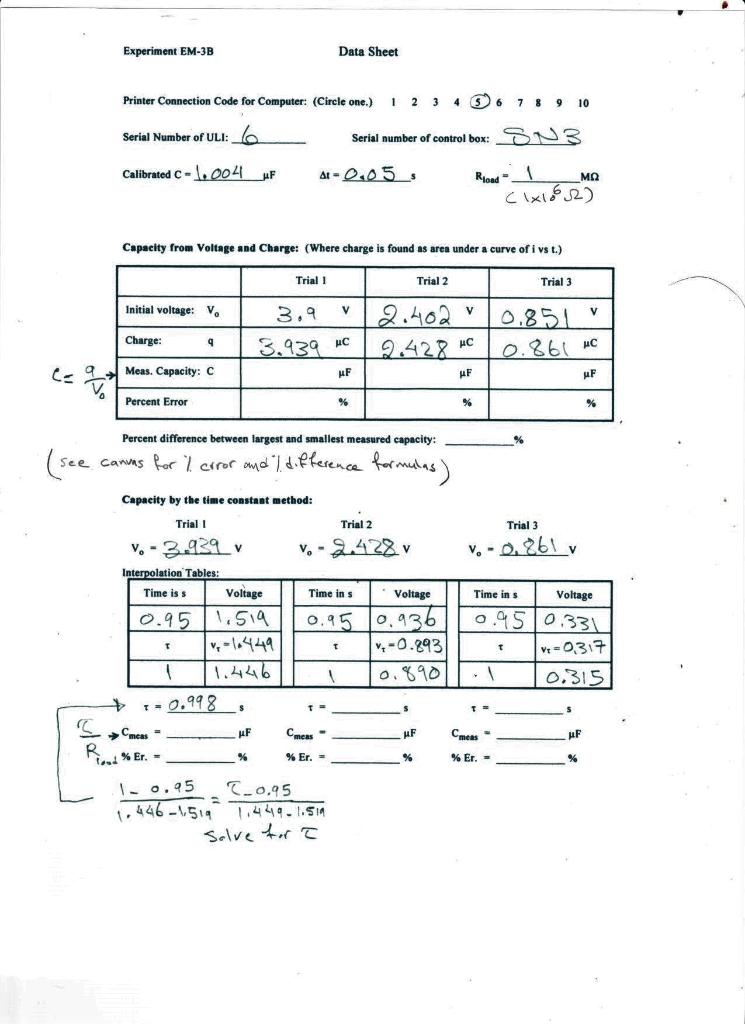 Experiment EM-3B Data Sheet
Printer Connection Code for Computer: (Circle one.) 1 2 3 4 5 6 7 8 9 10
Serial Number of ULI: 6 Serial number of control box: SN3
Calibrated C = 1.004 µF Δt = 0.05 s Rload = 1 MΩ
(1x10^6 Ω)
Capacity from Voltage and Charge: (Where charge is found as area under a curve of i vs t.)
Trial 1 Trial 2 Trial 3
Initial voltage: Vo 3.9 V 2.402 V 0.851 V
Charge: q 3.939 µC 2.428 µC 0.861 µC
C = q/Vo → Meas. Capacity: C µF µF µF
Percent Error % % %
Percent difference between largest and smallest measured capacity: ________ %
(see canvas for % error and % difference formulas)
Capacity by the time constant method:
Trial 1 Trial 2 Trial 3
Vo = 3.939 V Vo = 2.428 V Vo = 0.861 V
Interpolation Tables:
Time is s Voltage Time in s Voltage Time in s Voltage
0.95 1.519 0.95 0.936 0.95 0.331
τ Vτ = 1.449 τ Vτ = 0.893 τ Vτ = 0.317
1 1.446 1 0.890 1 0.315
τ = 0.998 s τ = ________ s τ = ________ s
τ/Rload → Cmeas = ________ µF Cmeas = ________ µF Cmeas = ________ µF
% Er. = ________ % % Er. = ________ % % Er. = ________ %
1 - 0.95 / 1.446 - 1.519 = τ - 0.95 / 1.449 - 1.519
Solve for τ